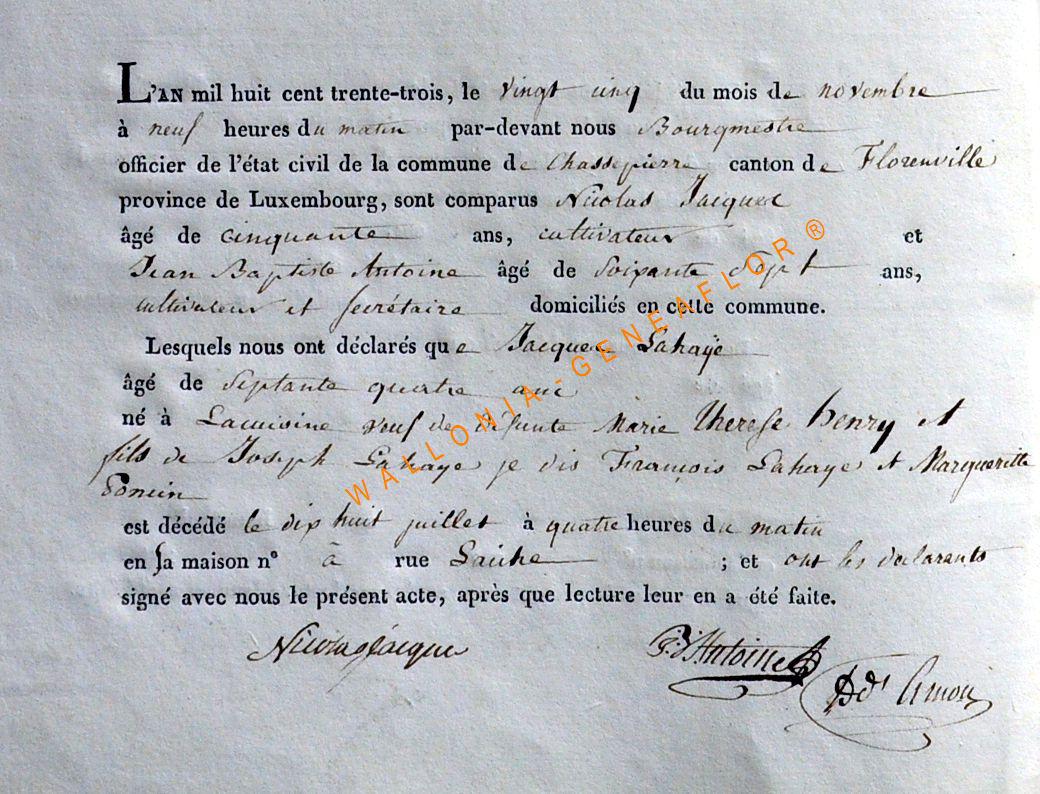 L'AN mil huit cent trente-trois, le vingt cinq du mois de novembre
à neuf heures du matin par-devant nous Bourgmestre
officier de l'état civil de la commune de Chassepierre canton de Florenville
province de Luxembourg, sont comparus Nicolas Jacques
âgé de cinquante ans, cultivateur et
Jean Baptiste Antoine âgé de soixante sept ans,
cultivateur et secrétaire domiciliés en cette commune.
Lesquels nous ont déclarés que Jacques Lahaÿe
âgé de septante quatre ans
né à Lacuisine veuf de défunte Marie Therese henry et
fils de Joseph Lahaye je dis François Lahaye et Margueritte
Poncin
est décédé le dix huit juillet à quatre heures du matin
en sa maison n° à rue Laiche ; et ont les déclarants
signé avec nous le présent acte, après que lecture leur en a été faite.
Nicolas Jacque JB Antoine
WALLONIA-GENEAFLOR ®